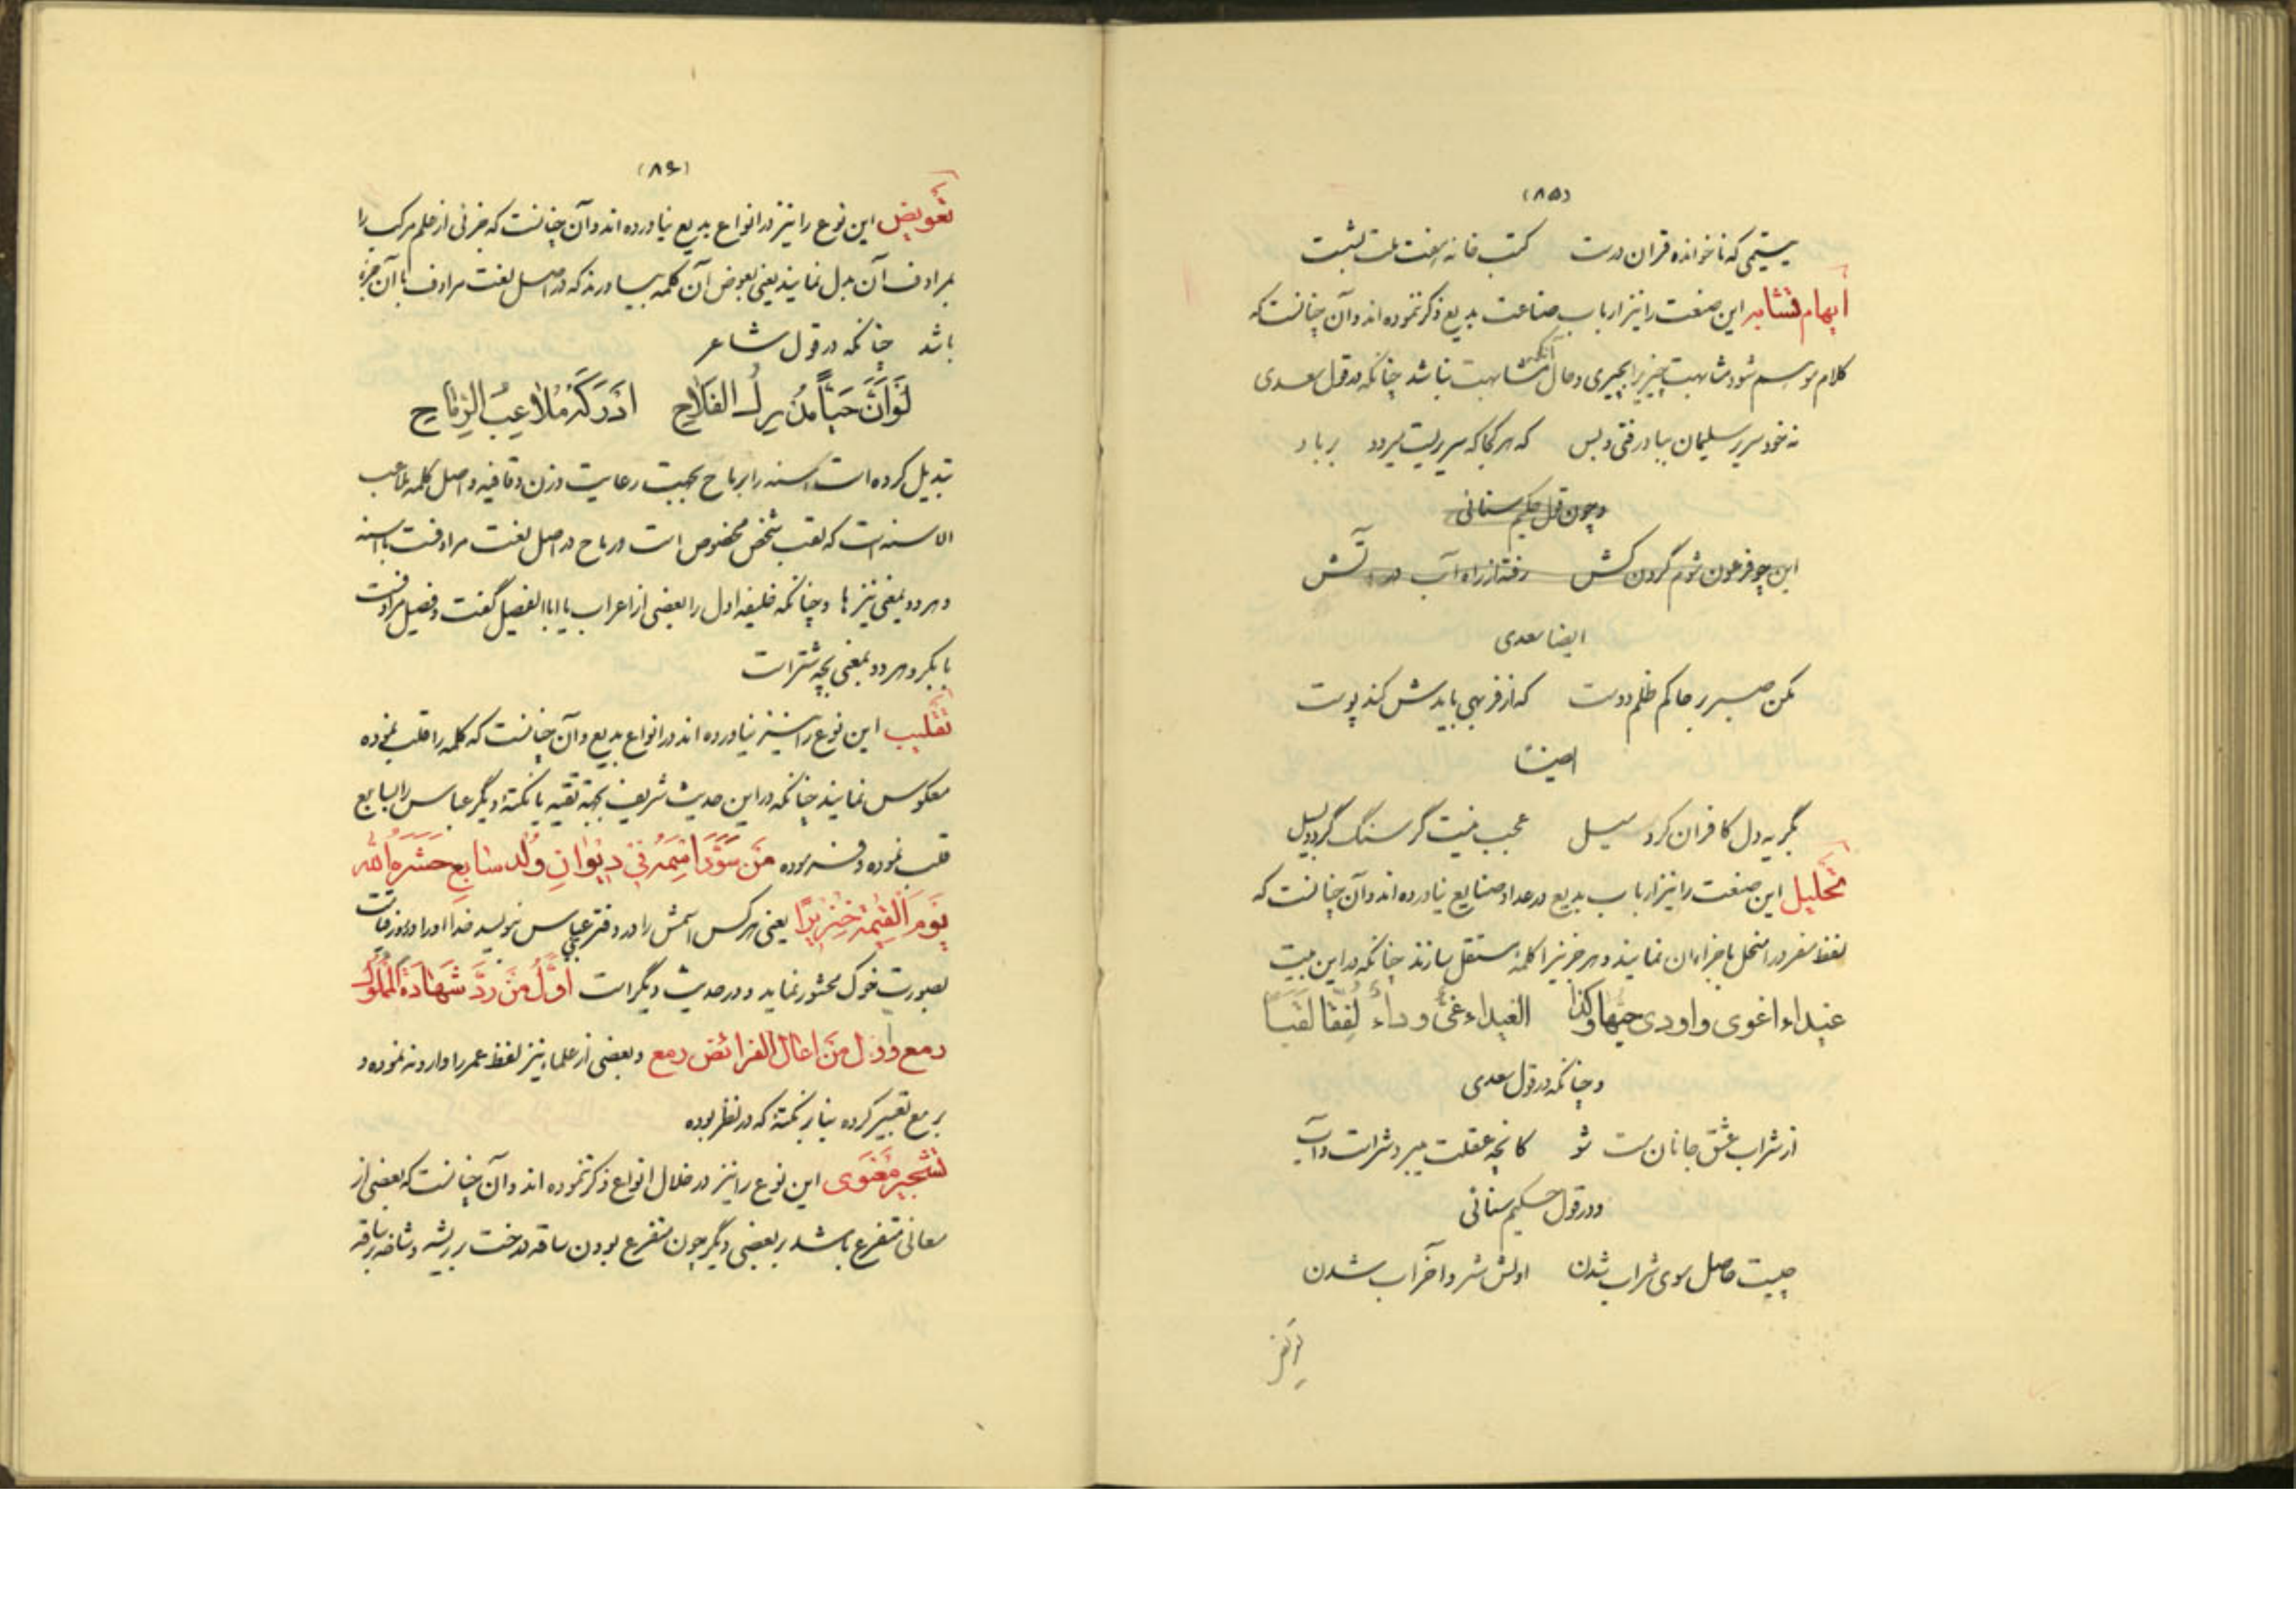 (۸۵)
یتیمی که ناخوانده قران درست کتب خانه هفت ملت بشست
ایهام تشابه این صنعت را نیز ارباب صناعت بدیع ذکر ننموده اند و آن چنانست که
کلام موسم شود مشابهت چیزیرا بچیزی و حال آنکه مشابهت نباشد چنانکه در قول سعدی
نه خود سریر سلیمان بباد رفتی و بس که هر کجا که سریریست میرود بر باد
و چون قول حکیم سنائی
این چو فرعون شوم گردن کش رفته از راه آب در آتش
ایضا سعدی
مکن صبر بر حاکم ظلم دوست که از فربهی بایدش کند پوست
ایضا
بگریه دل کافران کرد سیل عجب نیست گر سنگ گردد بسیل
تحلیل این صنعت را نیز ارباب بدیع در عداد صنایع نیاورده اند و آن چنانست که
لفظ مفرد را منحل باجزاء آن نمایند و هر جزئیرا کلمهٔ مستقل سازند چنانکه در این بیت
غیداء اغوی واودی حبها وکذا الغیداء غیّ وداءٌ لفقا لقبا
و چنانکه در قول سعدی
از شراب عشق جانان مست شو کانچه عقلت میبرد شر است و آب
و در قول حکیم سنائی
چیست حاصل سوی شراب شدن اولش شر و آخر آب شدن
تعویض
(۸۶)
تعویض این نوع را نیز در انواع بدیع نیاورده اند و آن چنانست که جزئی از علم مرکب را
بمرادف آن بدل نمایند یعنی بعوض آن کلمه بیاورند که در اصل لغت مرادف با آن جزء
باشد چنانکه در قول شاعر
لَوْ اَنَّ حَیّاً مُدْرِكُ الفَلاحِ اَدْرَکَهُ مُلاعِبُ الرِّماحِ
تبدیل کرده است اسنه را برماح بجهت رعایت وزن و قافیه و اصل کلمه ملاعب
الاسنه است که لقب شخص مخصوص است و رماح در اصل لغت مرادفست با اسنه
و هر دو بمعنی نیزها و چنانکه خلیفه اول را بعضی از اعراب یا ابا الفصیل گفت و فصیل مرادفست
با بکر و هر دو بمعنی بچه شتر است
تقلیب این نوع را نیز نیاورده اند در انواع بدیع و آن چنانست که کلمه را قلب نموده
معکوس نمایند چنانکه در این حدیث شریف بجهة تقیه یا نکتهٔ دیگر عباس را بسابع
قلب نموده و فرموده مَنْ سَوَّدَ اسْمَهُ فی دیوانِ وُلْدِ سابِعٍ حَشَرَهُ اللهُ
یَوْمَ القِیٰمَةِ خِنْزیرًا یعنی هر کس اسمش را در دفتر عباس نویسد خدا او را در روز قیامت
بصورت خوک محشور نماید و در حدیث دیگر است اوَّلُ مَنْ رَدَّ شَهادَةَ المَمْلُوكِ
رمع واول من اعال الفرائض رمع و بعضی از علماء نیز لفظ عمر را وارونه نموده و
برمع تعبیر کرده بنا بر نکتهٔ که در نظر بوده
تشجیر معنوی این نوع را نیز در خلال انواع ذکر ننموده اند و آن چنانست که بعضی از
معانی متفرع باشد بر بعضی دیگر چون متفرع بودن ساقه درخت بر ریشه و شاخه بر ساقه